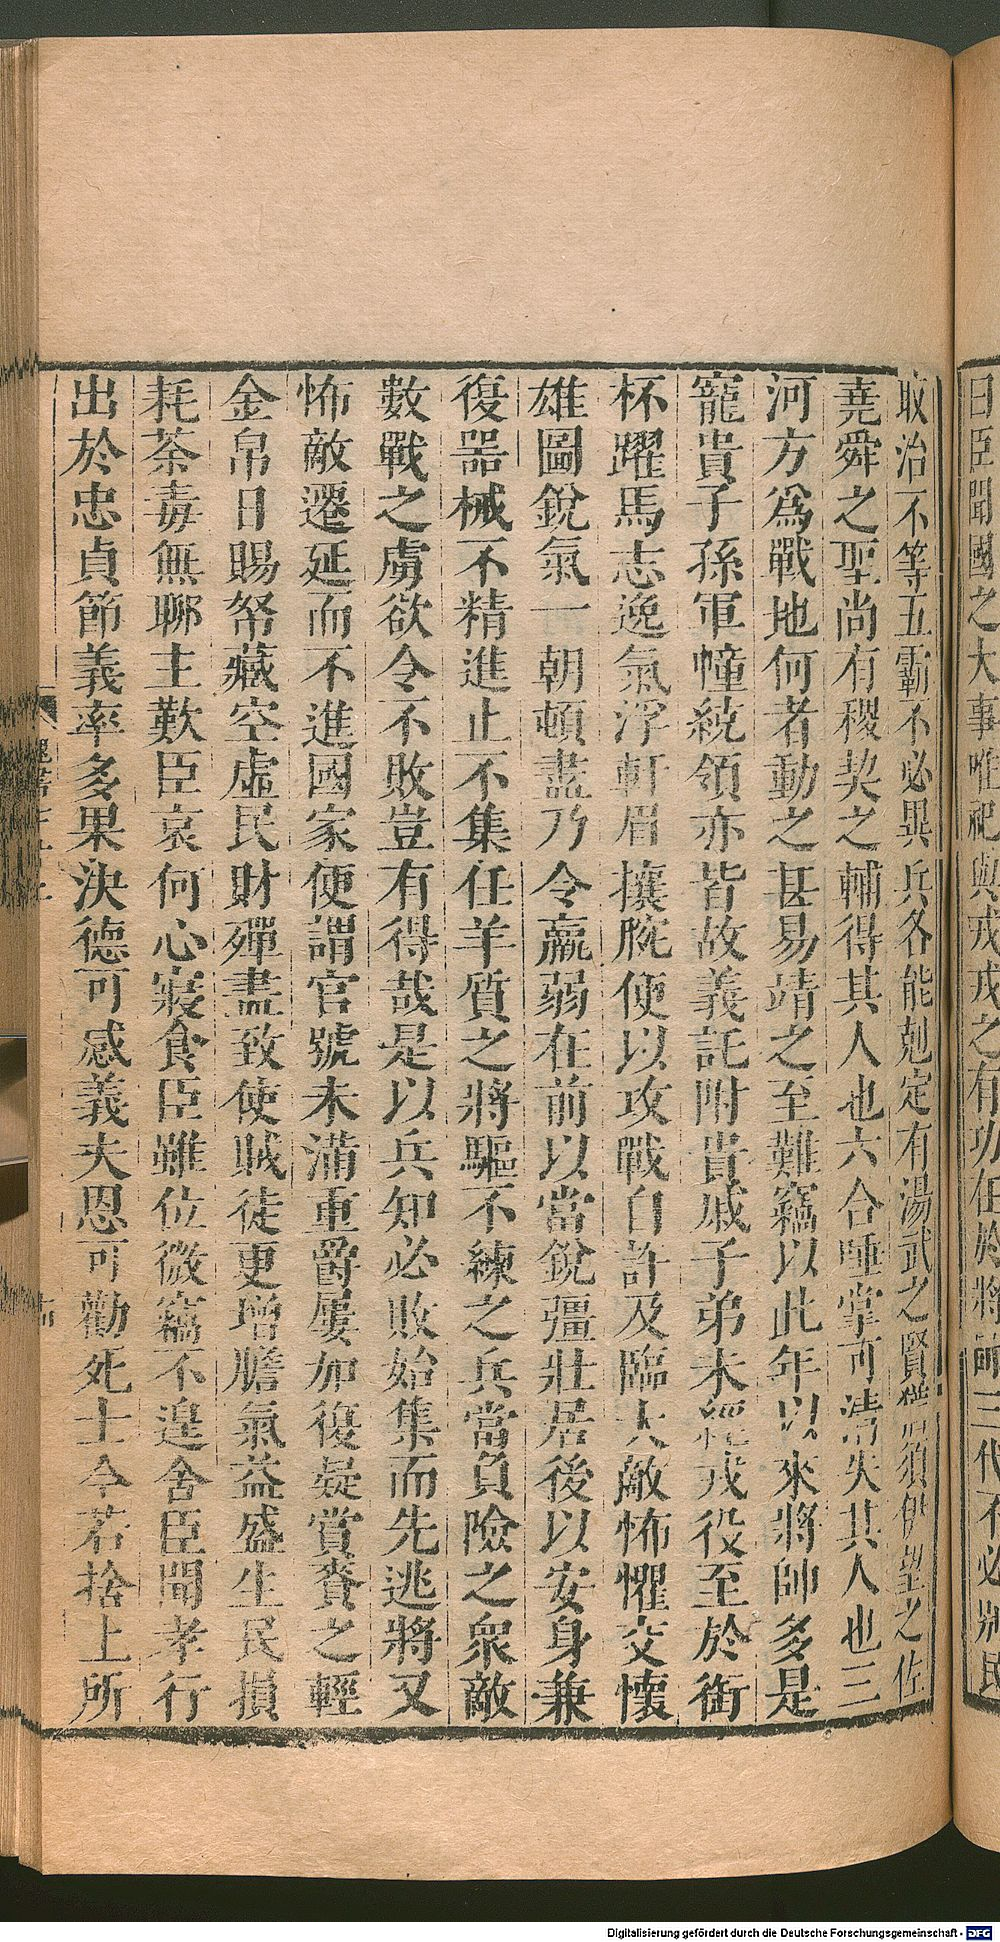 曰臣聞國之大事唯祀與戎戎之有功在於將帥三代不必別民
取治不等五霸不必異兵各能剋定有湯武之賢猶須伊望之佐
堯舜之聖尚有稷契之輔得其人也六合唾掌可清失其人也三
河方爲戰地何者動之甚易靖之至難竊以此年以來將帥多是
寵貴子孫軍幢統領亦皆故義託附貴戚子弟未經戎役至於銜
杯躍馬志逸氣浮軒眉攘腕便以攻戰自許及臨大敵怖懼交懷
雄圖銳氣一朝頓盡乃令羸弱在前以當銳彊壯居後以安身兼
復器械不精進止不集任羊質之將驅不練之兵當負險之衆敵
數戰之虜欲令不敗豈有得哉是以兵知必敗始集而先逃將又
怖敵遷延而不進國家便謂官號未滿重爵屢加復疑賞賚之輕
金帛日賜帑藏空虛民財殫盡致使賊徒更增膽氣益盛生民損
耗荼毒無聊主歎臣哀何心寢食臣雖位微竊不遑舍臣聞孝行
出於忠貞節義率多果決德可感義夫恩可勸死士今若捨上所
Digitalisierung gefördert durch die Deutsche Forschungsgemeinschaft - DFG